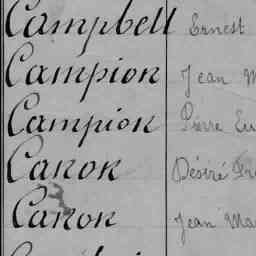 Campbell Ernest
Campion Jean M
Campion Pierre Eu
Canon Désiré Fr
Canon Jean Ma